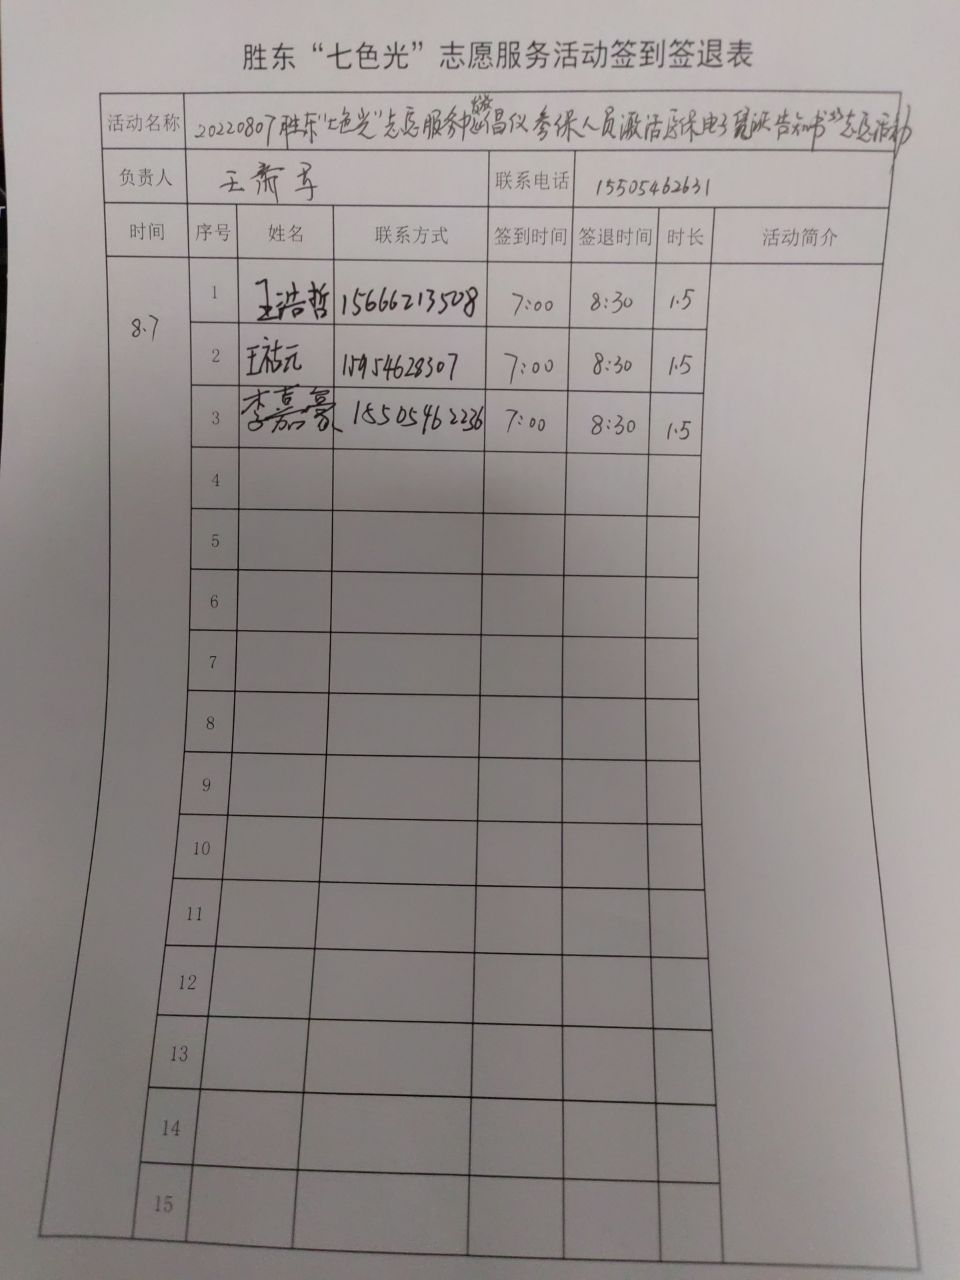 胜东“七色光”志愿服务活动签到签退表
活动名称 20220807胜东“七色光”志愿服务 参保人员激活医保电子凭证告知书 志愿活动
负责人 王 军 联系电话 15505462631
时间 序号 姓名 联系方式 签到时间 签退时间 时长 活动简介
8.7
1 王浩哲 15666213508 7:00 8:30 1.5
2 王祜元 15954628307 7:00 8:30 1.5
3 李嘉豪 18505462236 7:00 8:30 1.5
4
5
6
7
8
9
10
11
12
13
14
15